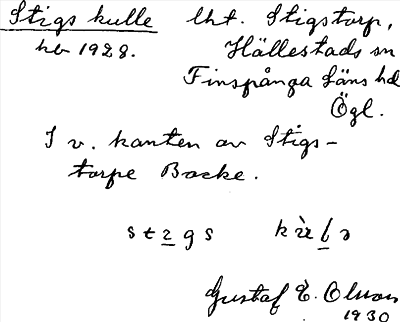 Stigs kulle lht. Stigstorp,
hb 1928. Hällestads sn
Finspånga läns hd
Ögl.
I v. kanten av Stigs-
torps Backe.
Gustaf E. Olsson
1930